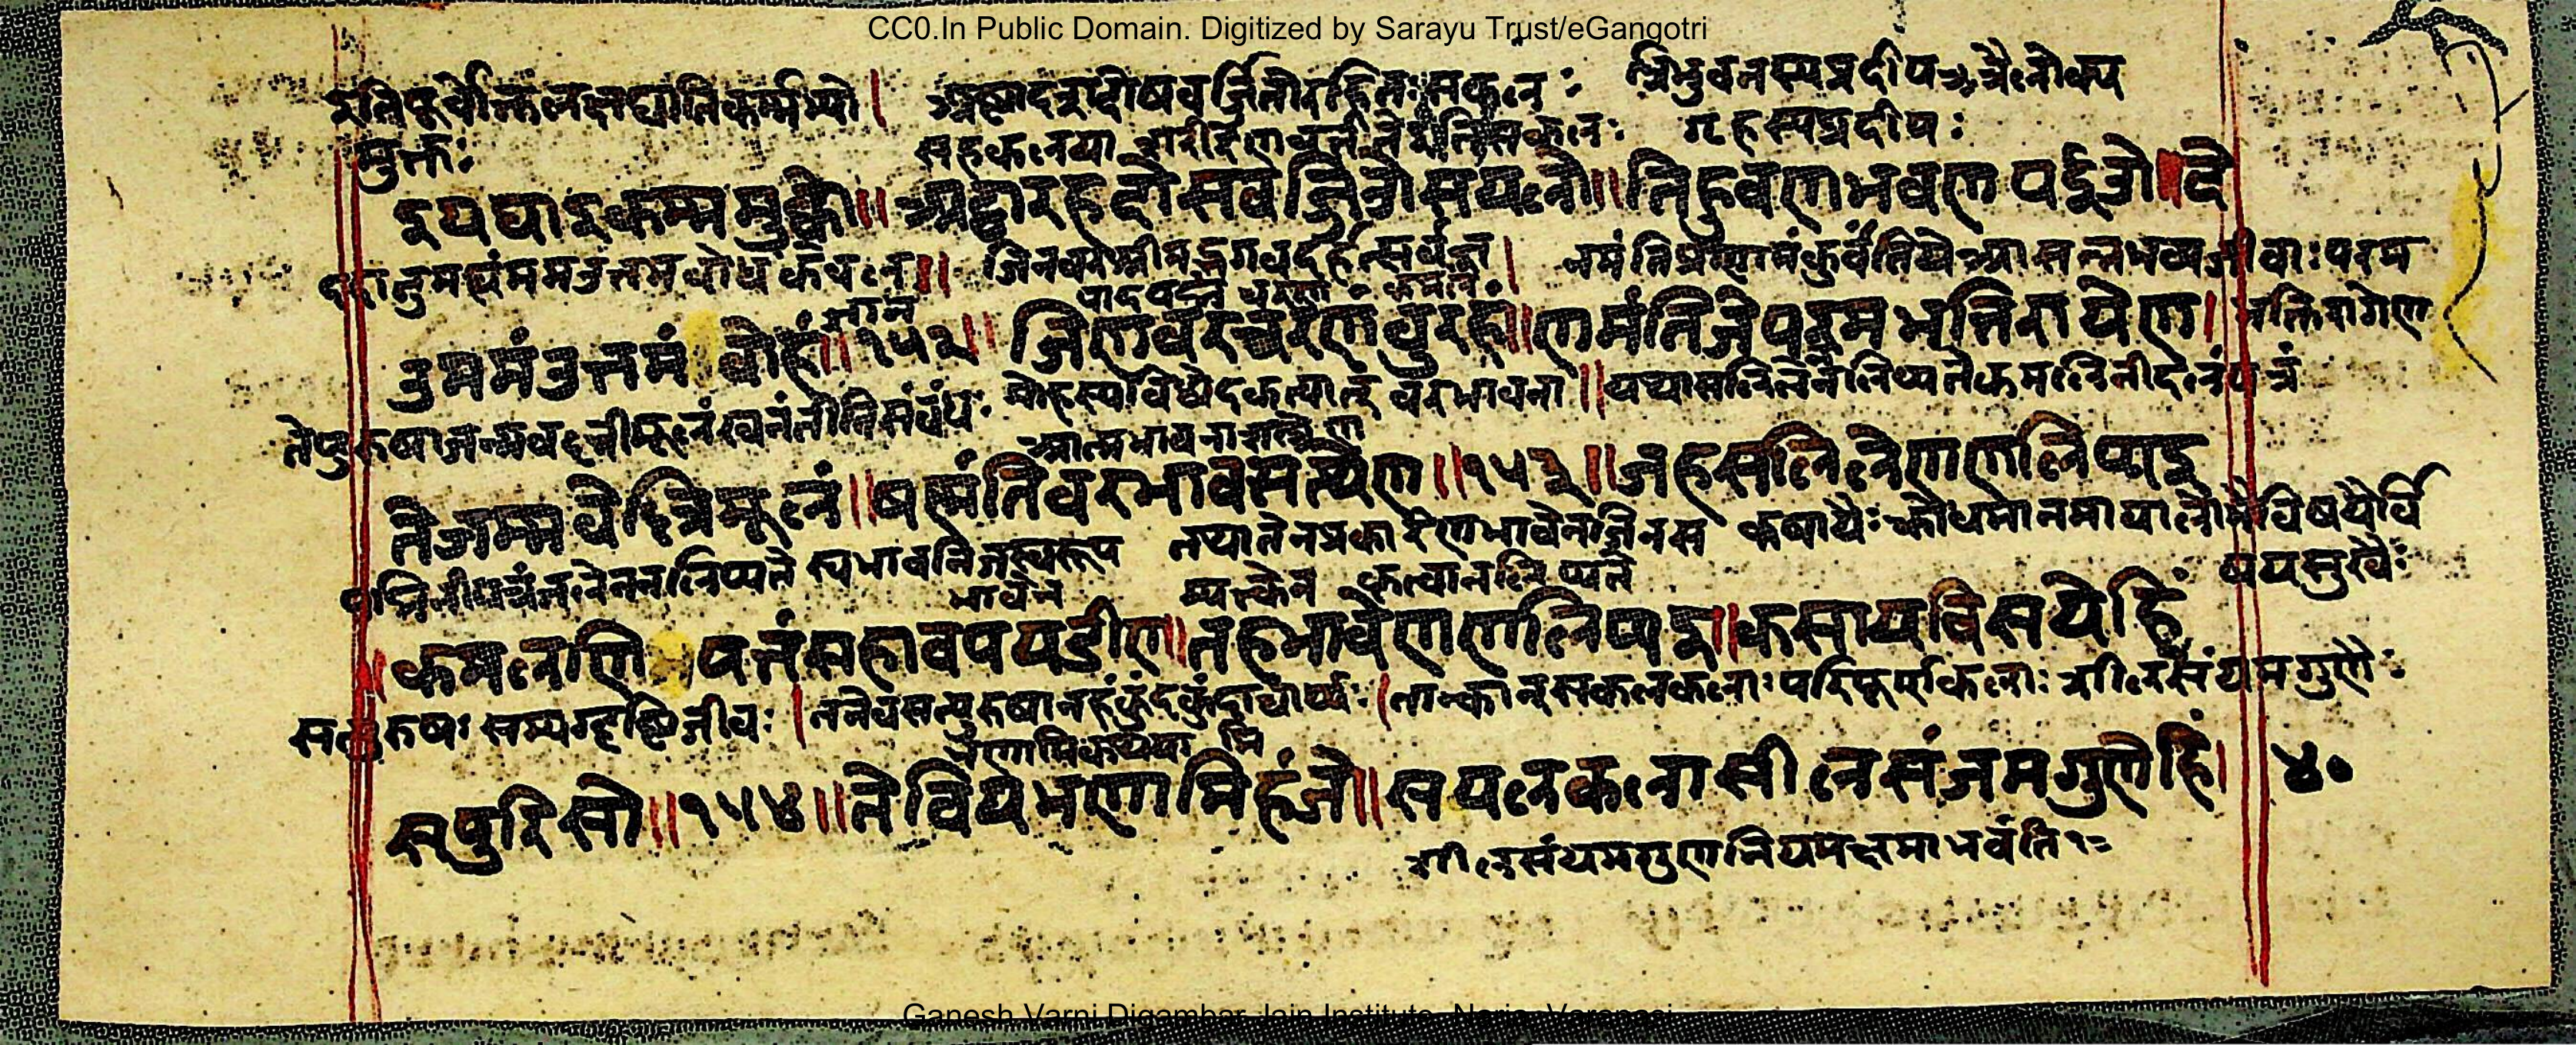 CC0.In Public Domain. Digitized by Sarayu Trust/eGangotri
इति पूर्वोक्तलक्षघातिकर्म्मभ्यो । अष्टादशदोषवर्जितोरहितः सकल: त्रिभुवनस्यप्रदीप त्रैलोक्य
मुक्तः सहकलया शरीरेणवर्तते इति सकलः गृहस्यप्रदीपः
इयघाइकम्ममुक्को॥ अट्ठारहदोसवज्जिओसयलो॥ तिहुवणभवणपईओ॥ दे
ददातुमह्यंममउत्तमबोध केवल ॥ जिनवरश्रीमद्भगवदर्हत्सर्वज्ञ । नमंतिप्रणामंकुर्वंतिये आसन्नभव्यजीवाः परम
ज्ञान पादपद्म चरण कमल
उममंउत्तमं बोहं॥१५२॥ जिणवरचरणंबुरुहं॥ णमंतिजेपरमभत्तिरायेण। भक्तिरागेण
तेपुरुषाजन्मवल्लीमूलंखनंतीतिसंबंधः मोहस्य वरभावना ॥ यथासलिलेननलिप्यतेकमलिनीदलंपत्रं
आत्मभावनाशस्त्रेण
तेजम्मवेल्लिमूलं॥ षणंतिवरभावसत्येण॥१५३॥ जहसलिलेणणलिप्पइ
पद्मिनीपत्रंजलेननलिप्यते स्वभावनिजस्वरूप तथातेनप्रकारेणभावेनजिनस कषायैः क्रोधमानमायालोभैविषयैर्वि
भावेन म्यक्त्वेन कृत्वानलिप्यते षयसुखैः
कमलणि पत्तंसहावपयडीए॥ तहभावेणणलिप्पइ॥ कसायविसयेहिं
सत्पुरुषः सम्यग्दृष्टिजीवः । तनेवसत्पुरुषानहंकुंदकुंदाचार्यः । तान्कान्सकलकलाः परिपूर्णकलाः शीलसंयमगुणैः
सप्पुरिसो॥१५४॥ तेवियभणामिहंजे॥ सयलकलासीलसंजमगुणेहिं। ४०
शीलसंयमगुण भवंति
Ganesh Varni Digambar Jain Institute, Naria, Varanasi